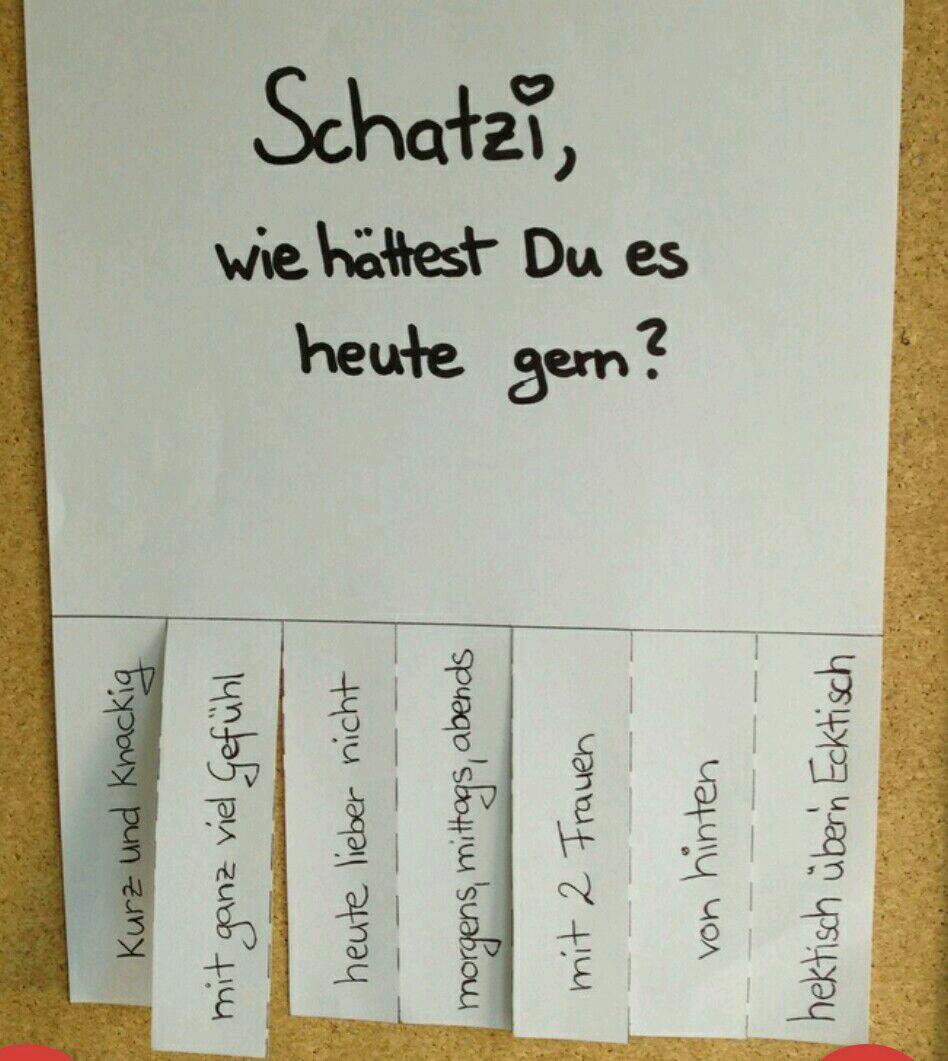 Schatzi,
wie hättest Du es
heute gern?
Kurz und Knackig
mit ganz viel Gefühl
heute lieber nicht
morgens, mittags, abends
mit 2 Frauen
von hinten
hektisch über'n Ecktisch